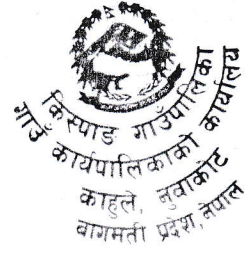 किस्पाङ गाउँपालिका
गाउँ कार्यपालिकाको कार्यालय
काहुले, नुवाकोट
वागमती प्रदेश, नेपाल